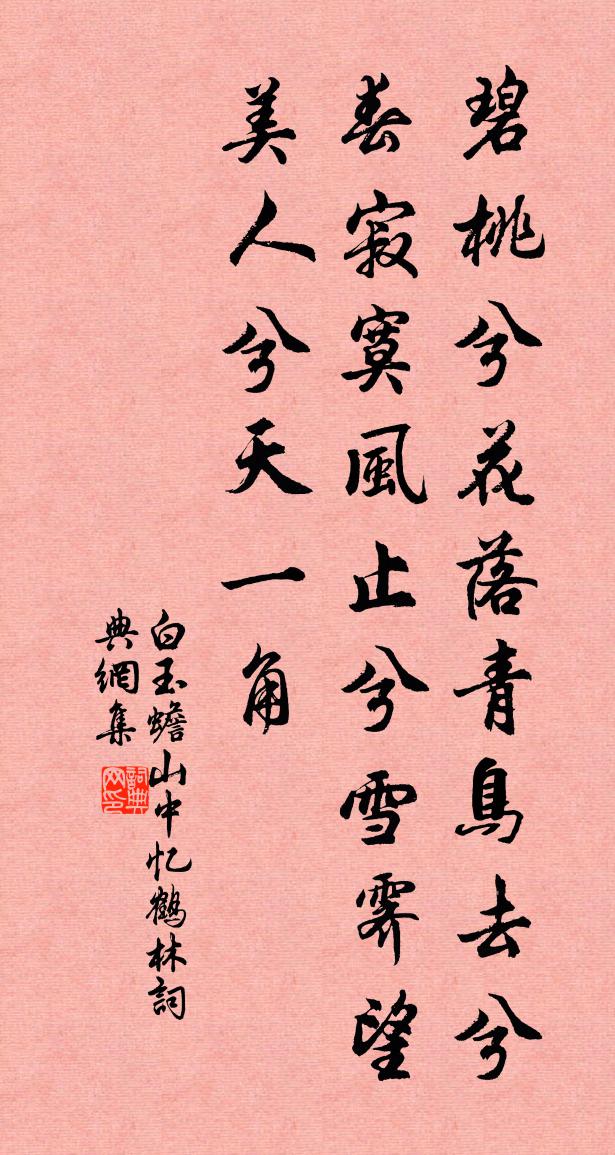 碧桃兮花落青鳥去兮
春寂寞風止兮雪霽望
美人兮天一角
白玉蟾山中忆鶴林詞
典網集
詞典
网印